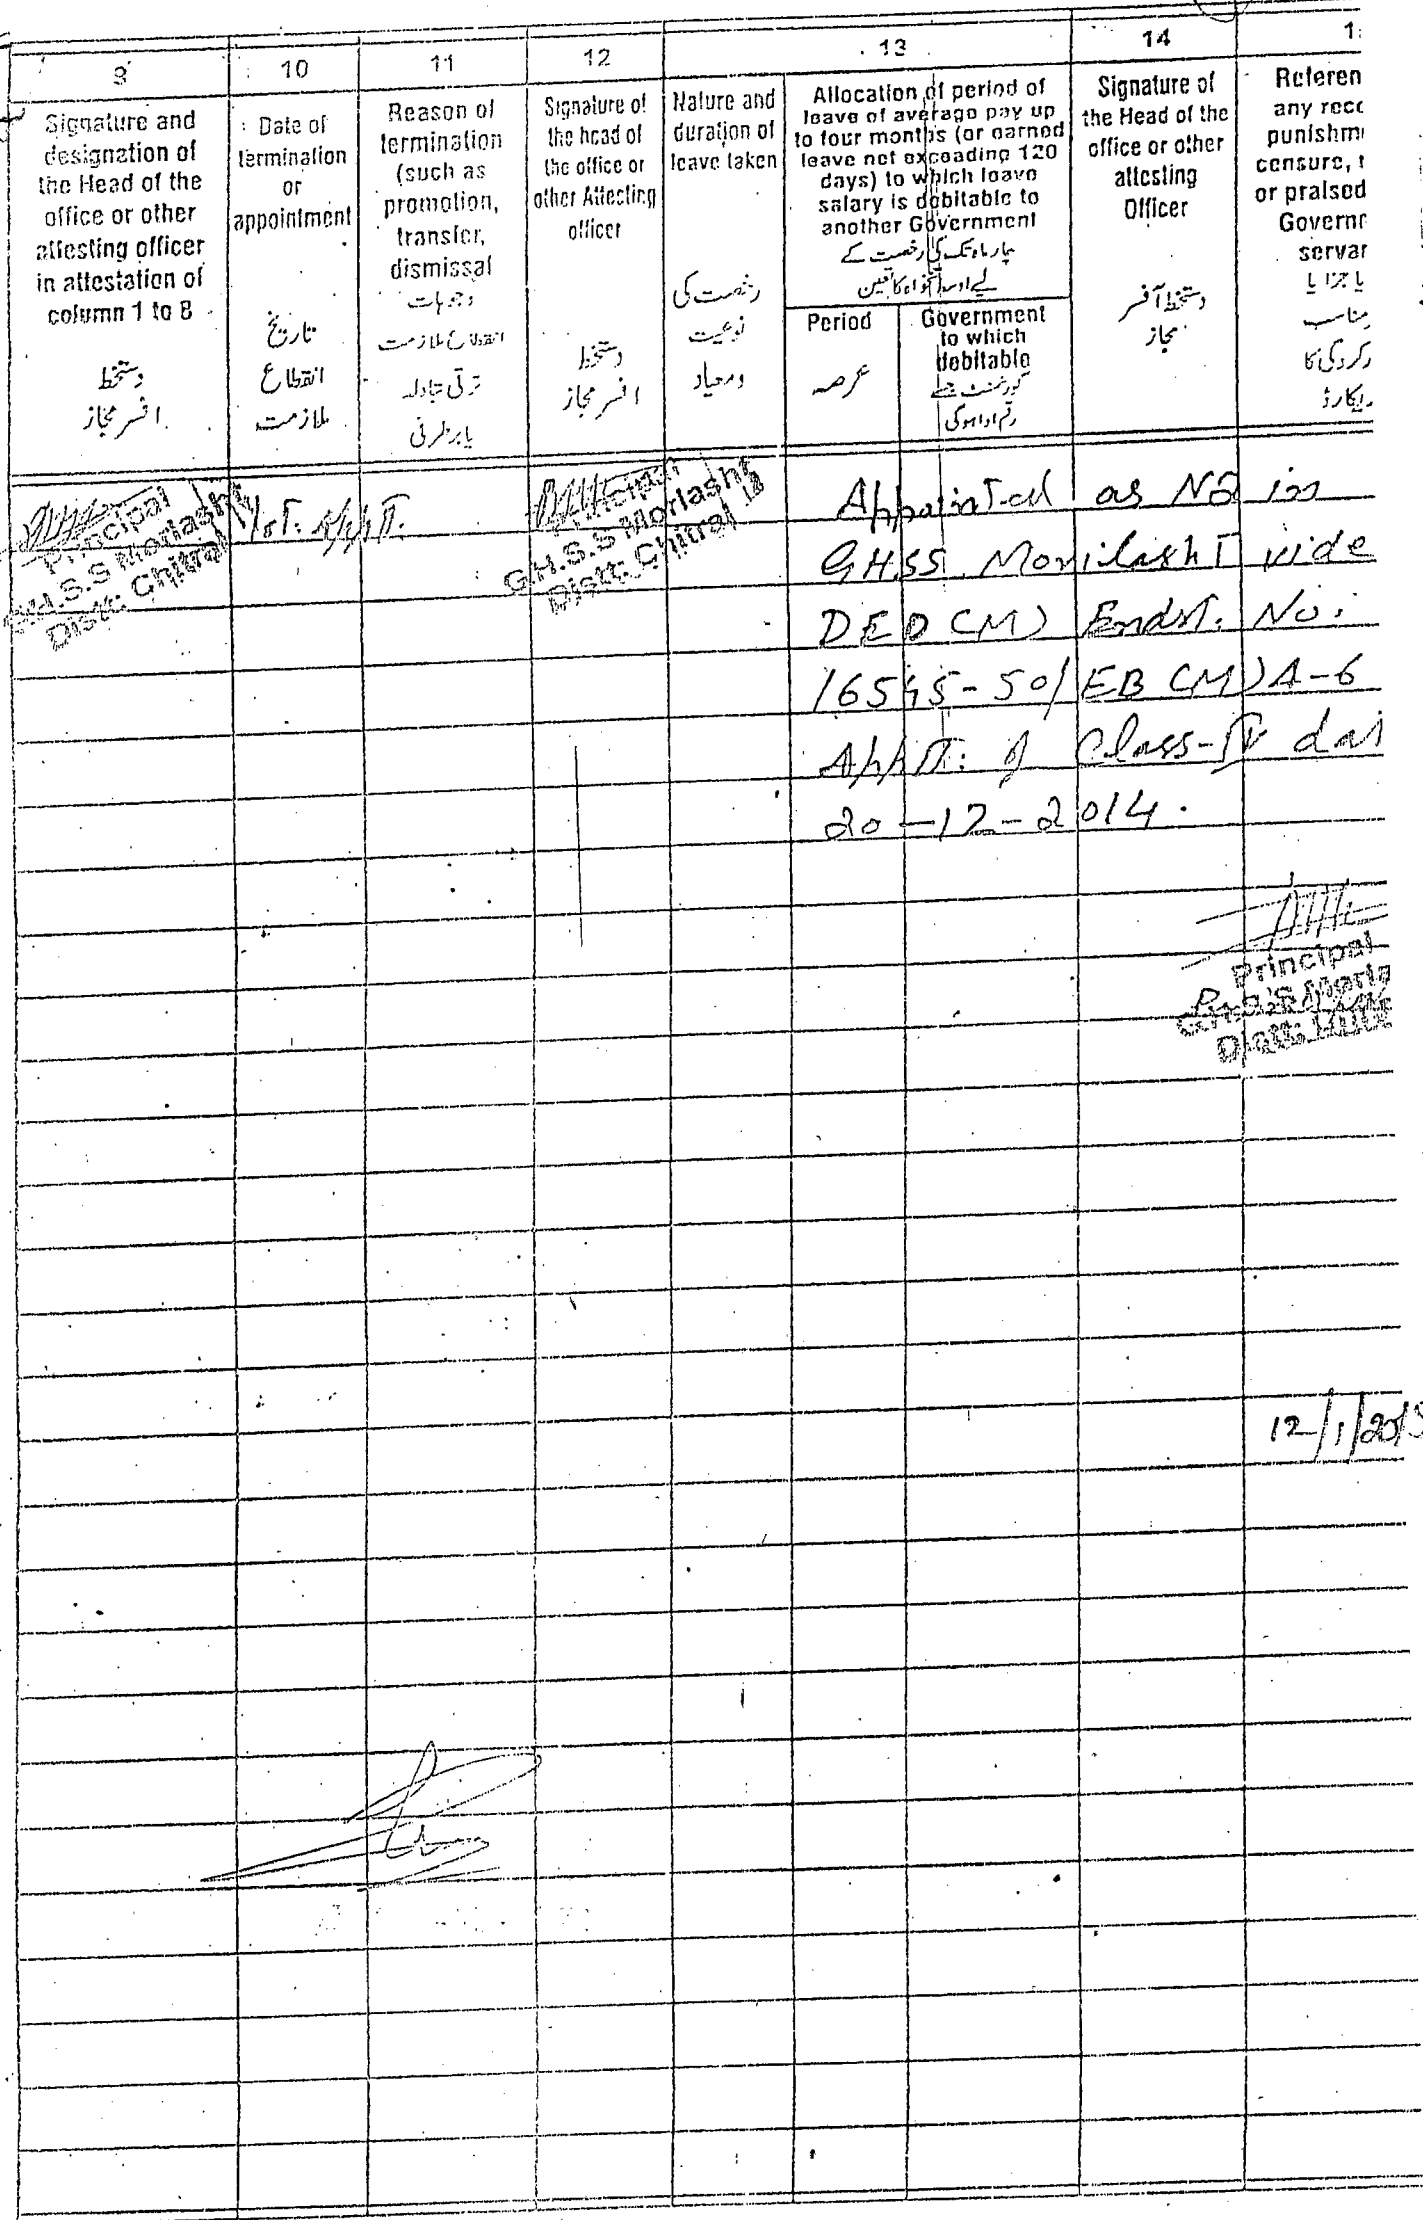 9
10
11
12
13
14
Signature and
designation of
the Head of the
office or other
attesting officer
in attestation of
column 1 to 8
دستخط
افسر مجاز
Date of
termination
or
appointment
تاریخ
انقطاع
ملازمت
Reason of
termination
(such as
promotion,
transfer,
dismissal
وجوہات
انقطاع ملازمت
ترقی تبادلہ
یا برطرفی
Signature of
the head of
the office or
other Attecting
officer
دستخط
افسر مجاز
Nature and
duration of
leave taken
رخصت کی
نوعیت
ومعیاد
Allocation of period of
leave of average pay up
to four months (or earned
leave not exceading 120
days) to which leave
salary is debitable to
another Government
چار ماہ تک کی رخصت کے
Period
عرصہ
Government
to which
debitable
گورنمنٹ جسے
رقم ادا ہوگی
Signature of
the Head of the
office or other
attesting
Officer
دستخط آفسر
مجاز
Referen
any reco
punishm
censure, r
or praised
Governr
servar
یا جزا یا
ریکارڈ
Principal
G.H.S.S Morilasht
Distt: Chitral
1st: Appt:
Principal
G.H.S.S Morilasht
Distt: Chitral
Appointed as NQ in
GHSS. Morilasht vide
DEO (M) Endst. No:
16545-50/EB (M) A-6
Apptt: of Class-IV dat
20-12-2014.
Principal
12/1/2015